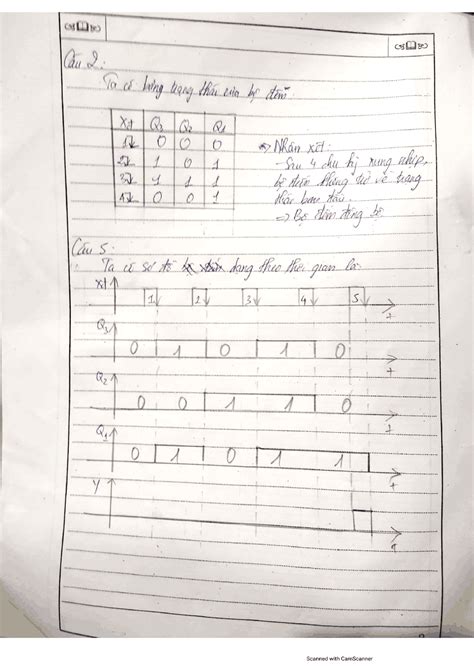 Câu 2:
Ta có bảng trạng thái của bộ đếm
X↓ Q3 Q2 Q1
1↓ 0 0 0
2↓ 1 0 1
3↓ 1 1 1
4↓ 0 0 1
=> Nhận xét:
- Sau 4 chu kỳ xung nhịp,
bộ đếm không tự về trạng
thái ban đầu.
=> Bộ đếm đồng bộ
Câu 5:
Ta có sơ đồ dạng theo thời gian là:
X↓ 1↓ 2↓ 3↓ 4↓ 5↓
t
Q3 0 1 0 1 0
t
Q2 0 0 1 1 0
t
Q1 0 1 0 1 1
t
Y
t
Scanned with CamScanner